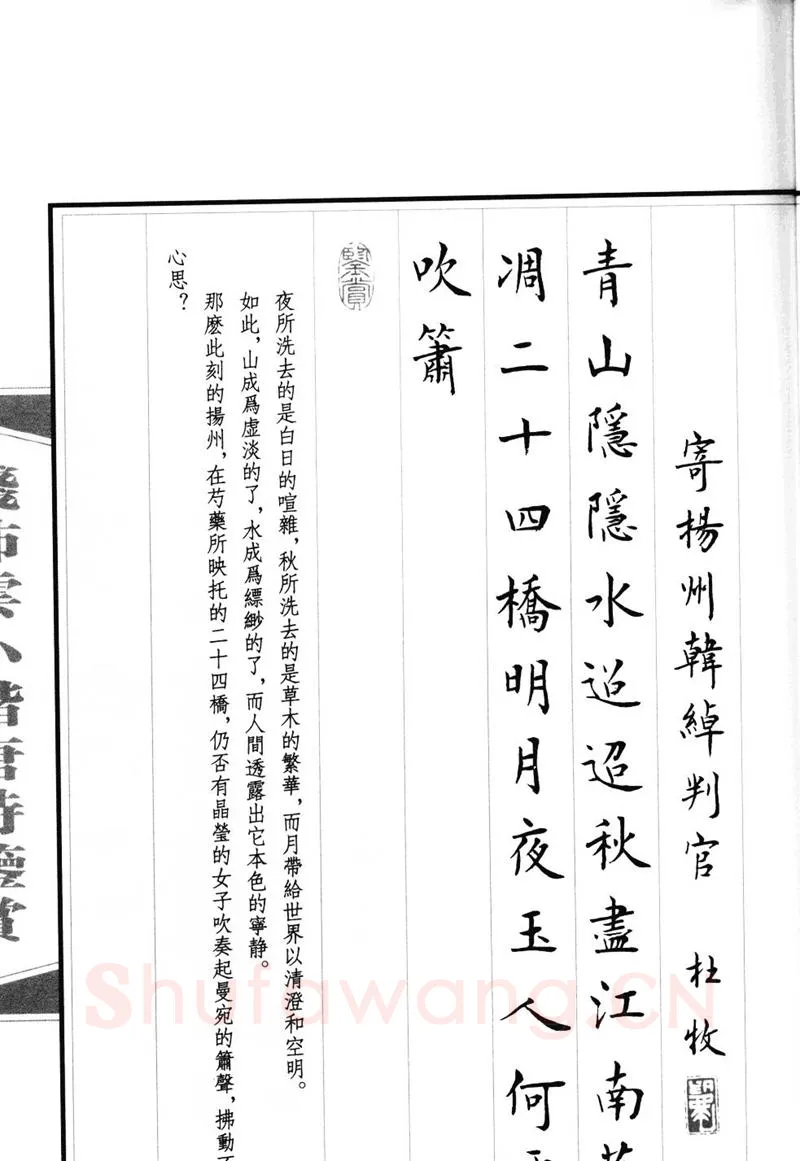 寄楊州韓綽判官 杜牧
青山隱隱水迢迢秋盡江南
凋二十四橋明月夜玉人何
吹簫
鑒賞
夜所洗去的是白日的喧雜，秋所洗去的是草木的繁華，而月帶給世界以清澄和空明。
如此，山成爲虛淡的了，水成爲縹緲的了，而人間透露出它本色的寧静。
那麽此刻的揚州，在芍藥所映托的二十四橋，仍否有晶瑩的女子吹奏起曼宛的簫聲，拂動
心思？
小楷唐詩鑒賞
Shufawang.CN